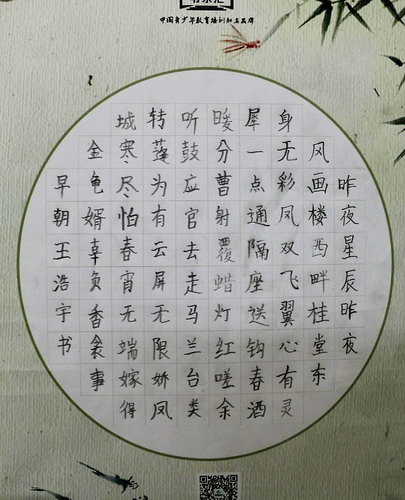 中国青少年教育培训知名品牌
昨夜星辰昨夜
风画楼西畔桂堂东
身无彩凤双飞翼心有灵
犀一点通隔座送钩春酒
暖分曹射覆蜡灯红嗟余
听鼓应官去走马兰台类
转蓬为有云屏无限娇凤
城寒尽怕春宵无端嫁得
金龟婿辜负香衾事
早朝王浩宇书